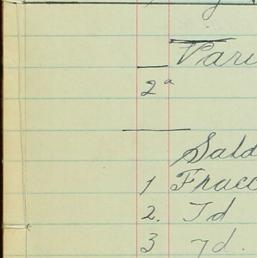 Vari
2ª
Sald
1 Fracc
2. Id
3 Id.